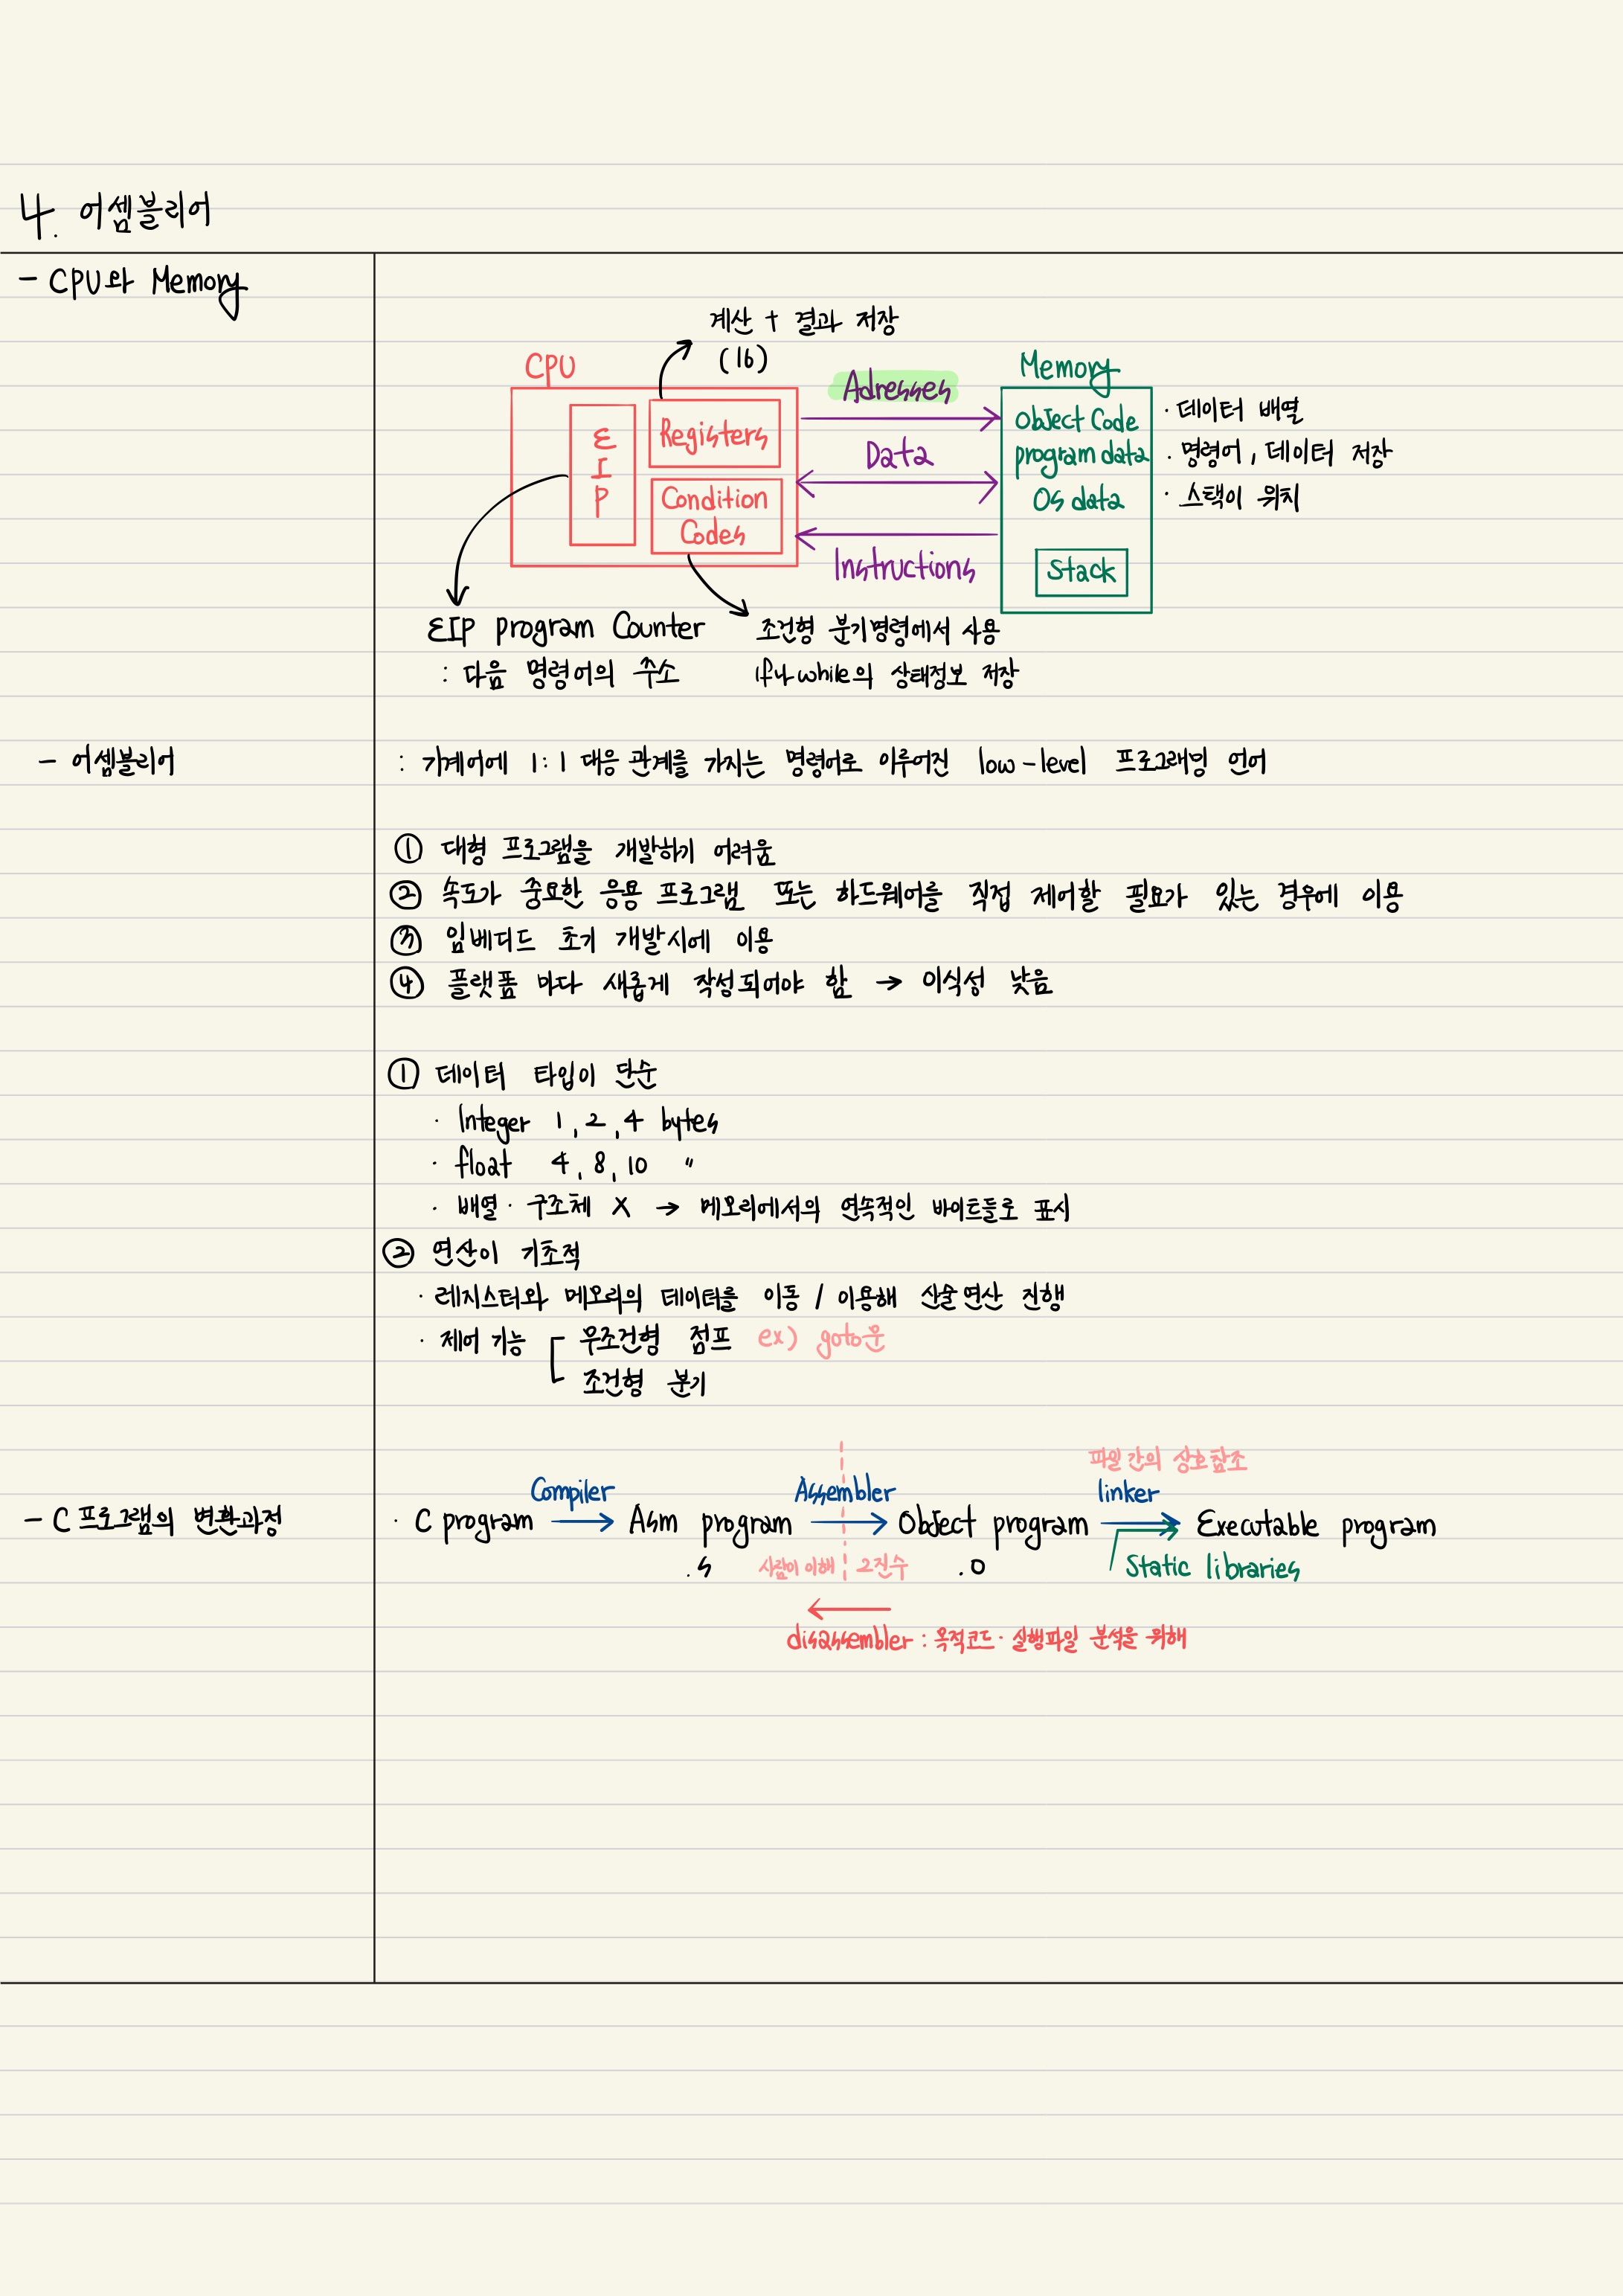 4. 어셈블리어
- CPU와 Memory
계산 + 결과 저장
(16)
CPU
EIP
Registers
Condition
Codes
Adresses
Data
Instructions
Memory
Object Code
program data
OS data
Stack
· 데이터 배열
· 명령어, 데이터 저장
· 스택이 위치
EIP program Counter
: 다음 명령어의 주소
조건형 분기명령에서 사용
if나 while의 상태정보 저장
- 어셈블리어
: 기계어에 1:1 대응 관계를 가지는 명령어로 이루어진 low-level 프로그래밍 언어
① 대형 프로그램을 개발하기 어려움
② 속도가 중요한 응용 프로그램 또는 하드웨어를 직접 제어할 필요가 있는 경우에 이용
③ 임베디드 초기 개발시에 이용
④ 플랫폼 마다 새롭게 작성되어야 함 → 이식성 낮음
① 데이터 타입이 단순
· Integer 1, 2, 4 bytes
· float 4, 8, 10 "
· 배열 · 구조체 X → 메모리에서의 연속적인 바이트들로 표시
② 연산이 기초적
· 레지스터와 메모리의 데이터를 이동 / 이용해 산술연산 진행
· 제어 기능 무조건형 점프 ex) goto문
조건형 분기
- C 프로그램의 변환과정
파일 간의 상호참조
Compiler Assembler linker
· C program → Asm program → Object program → Executable program
.s 사람이 이해 2진수 .o Static libraries
disassembler : 목적코드 · 실행파일 분석을 위해